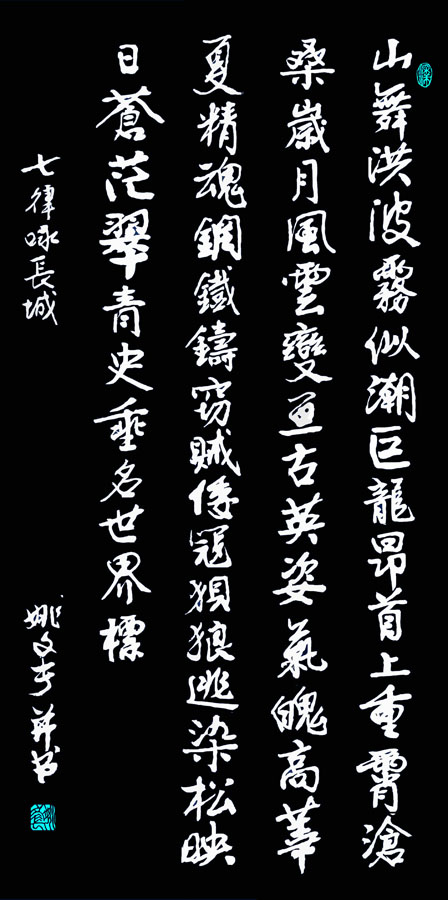 山舞洪波霧似潮巨龍昂首上重霄滄
桑歲月風雲變亘古英姿氣魄高華
夏精魂鋼鐵鑄窃賊倭寇狽狼逃染松映
日蒼茫翠青史垂名世界標
七律咏長城
姚文并书